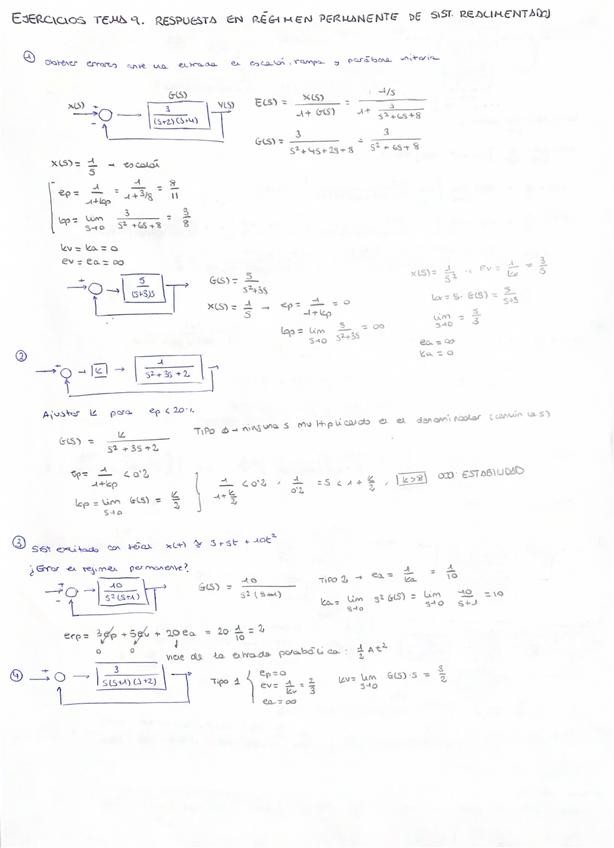 EJERCICIOS TEMA 9. RESPUESTA EN RÉGIMEN PERMANENTE DE SIST. REALIMENTADOS
① Obtener errores ante una entrada en escalón, rampa y parábola unitaria
G(s)
X(s) + - 3/((s+2)(s+4)) Y(s)
E(s) = X(s)/(1+G(s)) = (1/s)/(1 + 3/(s²+6s+8))
G(s) = 3/(s²+4s+2s+8) = 3/(s²+6s+8)
X(s) = 1/s → escalón
ep = 1/(1+kp) = 1/(1+3/8) = 8/11
kp = lim s→0 3/(s²+6s+8) = 3/8
kv = ka = 0
ev = ea = ∞
+ - 5/((s+3)s)
G(s) = 5/(s²+3s)
X(s) = 1/s → ep = 1/(1+kp) = 0
kp = lim s→0 5/(s²+3s) = ∞
X(s) = 1/s² → ev = 1/kv = 3/5
kv = s·G(s) = 5/(s+3)
lim s→0 = 5/3
ea = ∞
ka = 0
② + - k 1/(s²+3s+2)
Ajustar k para ep < 20%
G(s) = k/(s²+3s+2)
TIPO 0 → ninguna s multiplicando en el denominador (común la s)
ep = 1/(1+kp) < 0'2
kp = lim s→0 G(s) = k/2
1/(1+k/2) < 0'2, 1/0'2 = 5 < 1 + k/2, k>8 ESTABILIDAD
③ Sist. excitado con x(t) = 3+5t+10t²
¿Error en régimen permanente?
+ - 10/(s²(s+1))
G(s) = 10/(s²(s+1))
TIPO 2 → ea = 1/ka = 1/10
ka = lim s→0 s²G(s) = lim s→0 10/(s+1) = 10
erp = 3ep + 5ev + 20ea = 20·1/10 = 2
0 0 viene de la entrada parabólica: 1/2 At²
④ + - 3/(s(s+1)(s+2))
TIPO 1
ep = 0
ev = 1/kv = 2/3
ea = ∞
kv = lim s→0 G(s)·s = 3/2